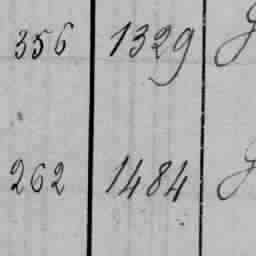 356 1329
262 1484